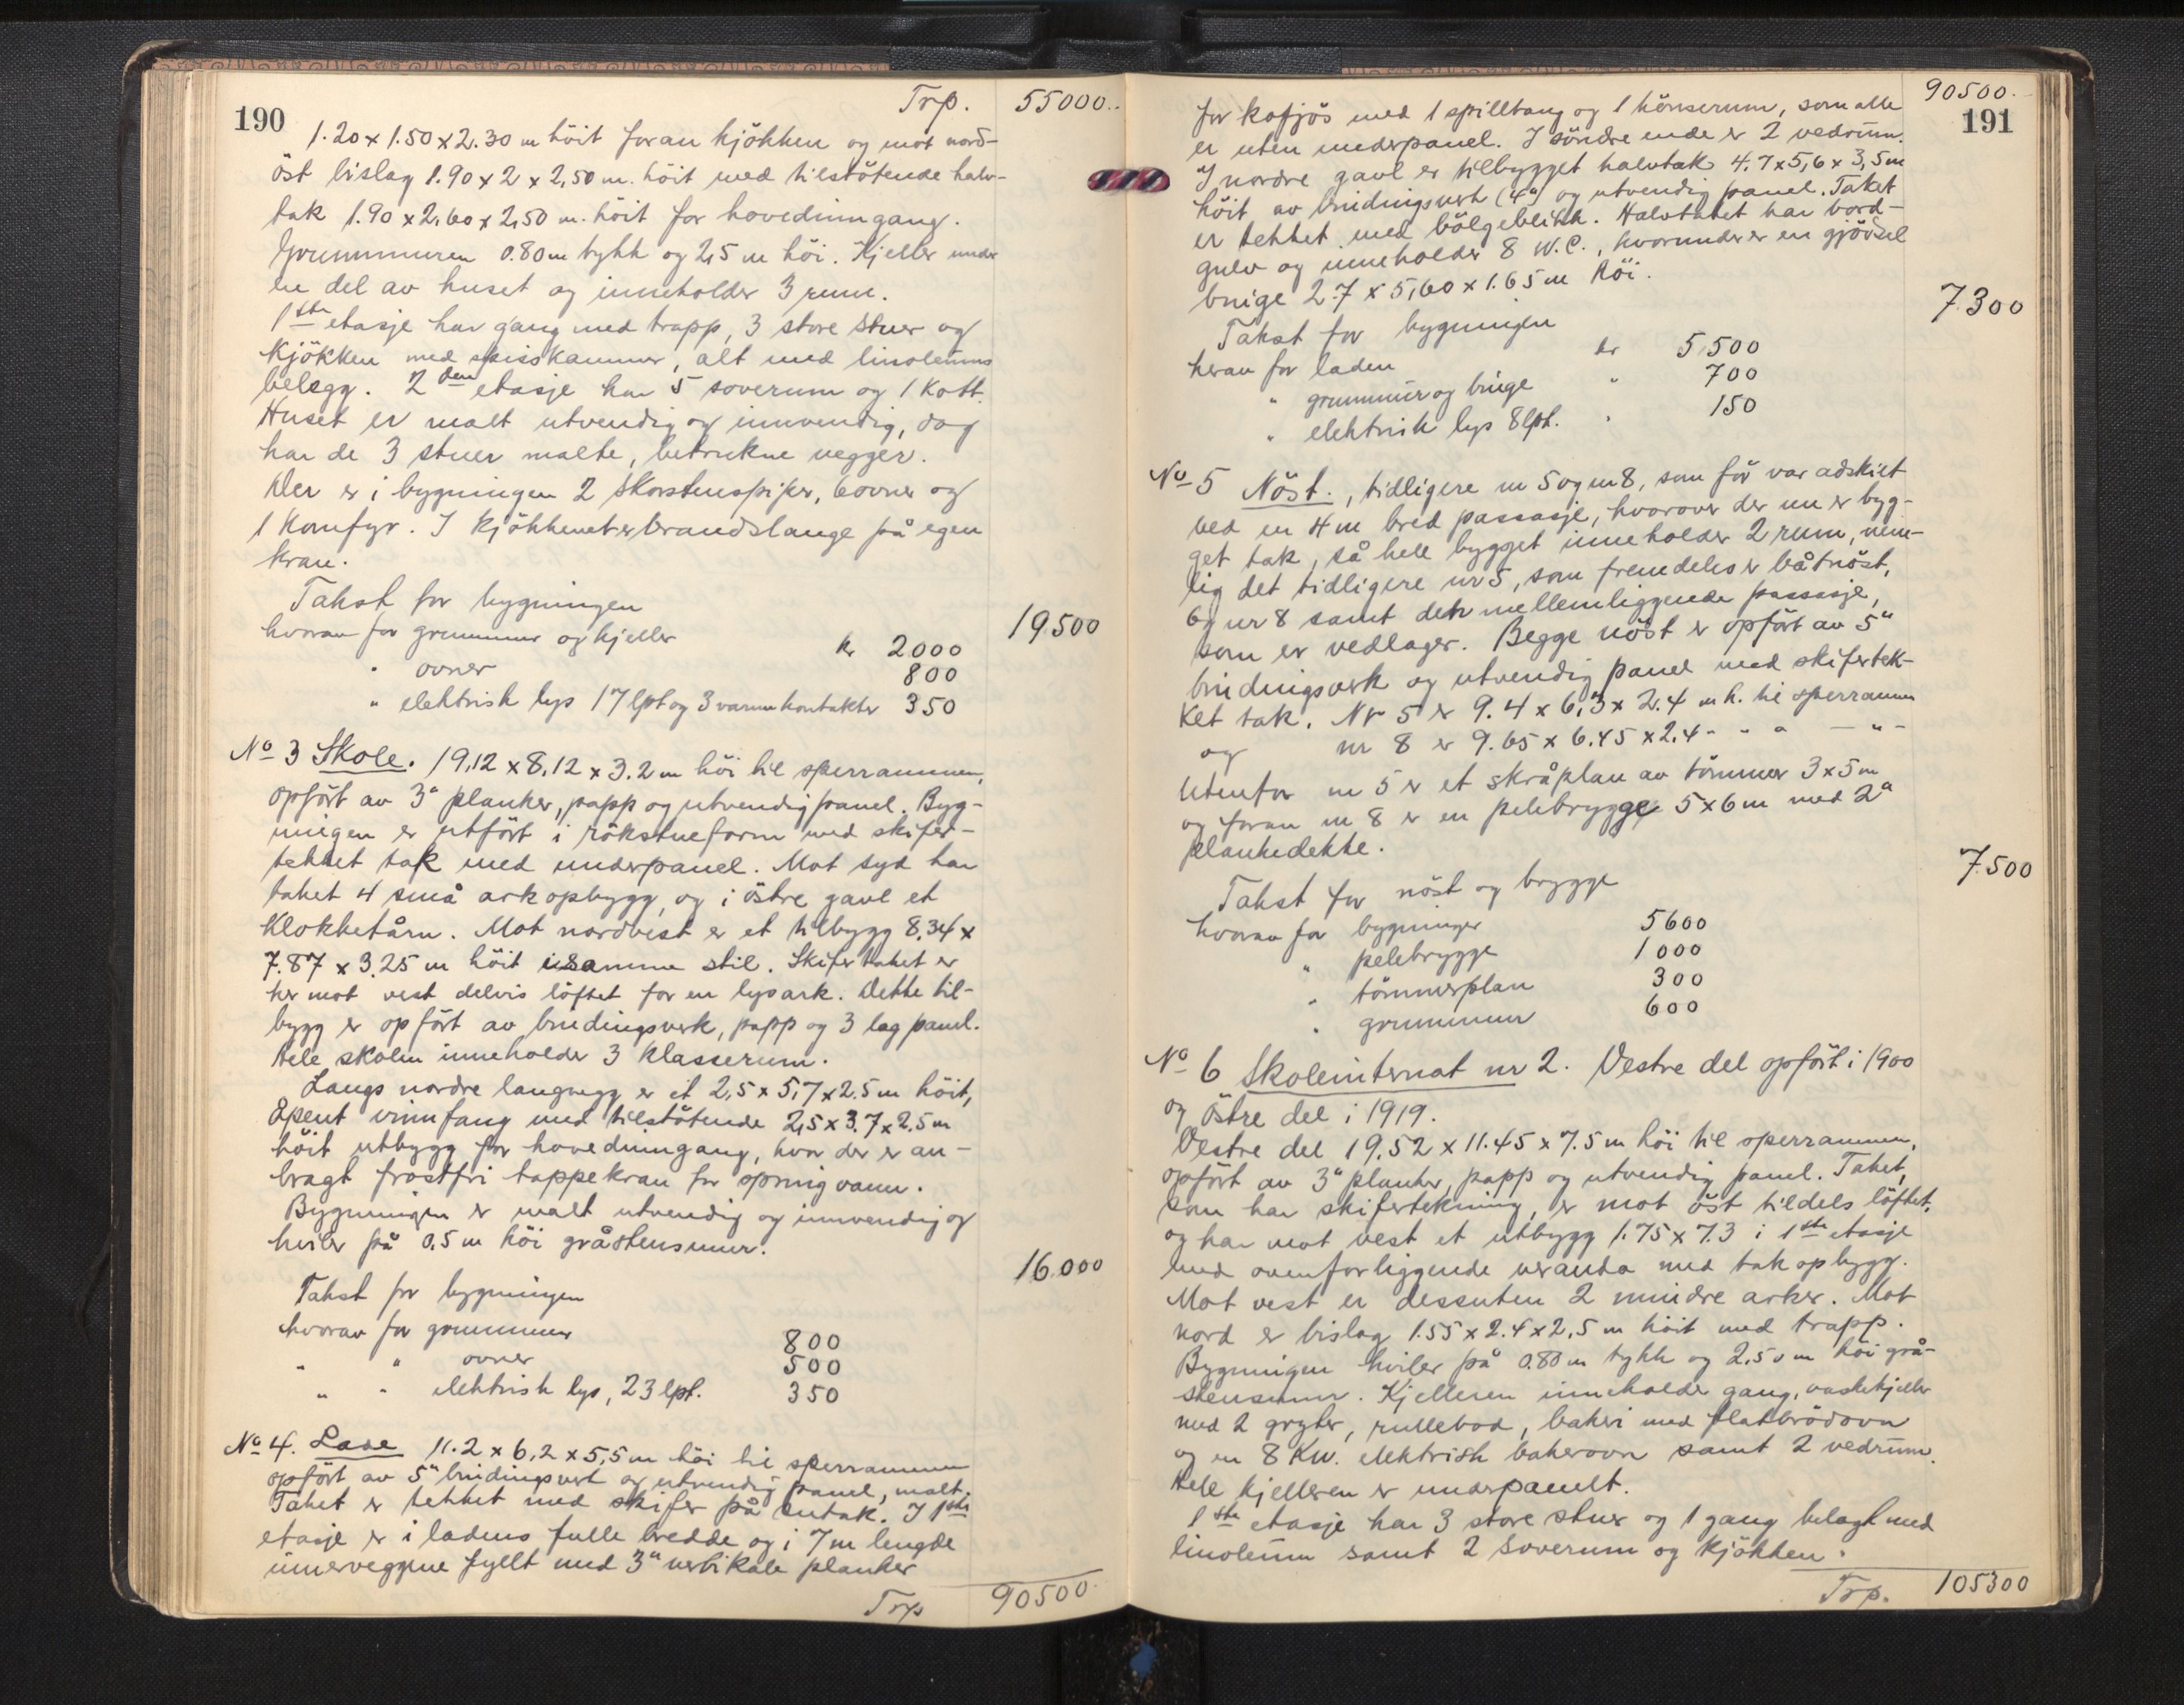 190
Trp. 55000..
1.20 x 1.50 x 2.30 m höit foran kjökken og mot nord-
öst bislag 1.90 x 2 x 2,50 m. höit med tilstötende halv-
tak 1.90 x 2,60 x 2,50 m. höit for hovedinngang.
Grunnmuren 0.80 m tykk og 2,5 m höi. Kjeller under
en del av huset og inneholder 3 rum.
1ste etasje har gang med trapp, 3 store stuer og
kjökken med spisskammer, alt med linoleums
belegg. 2den etasje har 5 soverum og 1 kott.
Huset er malt utvendig og innvendig, dog
har de 3 stuer malte, betrukne vegger.
Der er i bygningen 2 skorstenspiper, 6 ovner og
1 komfyr. I kjökkenet er brandslange på egen
kran.
Takst for bygningen 19.500
hvorav for grunnmur og kjeller kr 2000
" ovner 800
" elektrisk lys 17 lpt og 3 varmekontakter 350
No 3 Skole. 19,12 x 8,12 x 3.2 m höi til sperrammen,
opfört av 3" planker, papp og utvendig panel. Byg-
ningen er utfört i rökstueform med skifer-
tekket tak med underpanel. Mot syd har
taket 4 små arkopbygg, og i östre gavl et
klokketårn. Mot nordvest er et tilbygg 8,34 x
7.87 x 3.25 m höit i samme stil. Skifertaket er
her mot vest delvis löftet for en lysark. Dette til-
bygg er opfört av bindingsverk, papp og 3 lag panel.
Hele skolen inneholder 3 klasserum.
Langs nordre langvegg er et 2,5 x 5,7 x 2.5 m höit,
åpent vinnfang med tilstötende 2,5 x 3.7 x 2.5 m
höit utbygg for hovedinngang, hvor der er an-
bragt frostfri tappekran for springvann.
Bygningen er malt utvendig og innvendig og
hviler på 0,5 m höi gråstensmur.
Takst for bygningen 16.000
hvorav for grunnmur 800
" " ovner 500
" " elektrisk lys, 23 lpt. 350
No 4. Lade 11.2 x 6,2 x 5,5 m höi til sperrammen
opfört av 5" bindingsverk og utvendig panel, malt.
Taket er tekket med skifer på sutak. I 1ste
etasje er i ladens fulle bredde og i 7 m lengde
innerveggene fyllt med 3" vertikale planker
Trp 90500.
90500.
191
for kofjös med 1 spilltaug og 1 hönserum, som alle
er uten underpanel. I söndre ende er 2 vedrum.
I nordre gavl er tilbygget halvtak 4,7 x 5,6 x 3,5 m
höit av bindingsverk (4") og utvendig panel. Taket
er tekket med bölgeblikk. Halvtaket har bord-
gulv og inneholder 8 W.C., hvorunder er en gjödsel
binge 2.7 x 5,60 x 1.65 m höi.
Takst for bygningen 7.300
herav for laden kr 5500
" grunnmur og binge " 700
" elektrisk lys 8 lpt. " 150
No 5 Nöst., tidligere nr 5 og nr 8, som för var adskilt
ved en 4 m bred passasje, hvorover der nu er byg-
get tak, så hele bygget inneholder 2 rum, nem-
lig det tidligere nr 5, som fremdeles er båtnöst,
og nr 8 samt den mellemliggende passasje,
som er vedlager. Begge nöst er opfört av 5"
bindingsverk og utvendig panel med skifertek-
ket tak. Nr 5 er 9.4 x 6,3 x 2.4 m h. til sperrammen
og nr 8 er 9.65 x 6.45 x 2.4 - " " - " -
Utenfor nr 5 er et skråplan av tömmer 3 x 5 m
og foran nr 8 er en pelebrygge 5 x 6 m med 2"
plankedekke.
Takst for nöst og brygge 7.500
hvorav for bygninger 5600
" pelebrygge 1000
" tömmerplan 300
" grunnmur 600
No 6 Skoleinternat nr 2. Vestre del opfört i 1900
og östre del i 1919.
Vestre del 19.52 x 11.45 x 7.5 m höi til sperrammen,
opfört av 3" planker, papp og utvendig panel. Taket,
som har skifertekning, er mot öst tildels löftet,
og har mot vest et utbygg 1.75 x 7.3 i 1ste etasje
med ovenforliggende veranda med takopbygg.
Mot vest er dessuten 2 mindre arker. Mot
nord er bislag 1.55 x 2.4 x 2,5 m höit med trapp.
Bygningen hviler på 0.80 m tykk og 2,50 m höi grå-
stensmur. Kjelleren inneholder gang, vaskekjeller
med 2 gryter, rullebod, bakeri med flatbrödovn
og en 8 Kw. elektrisk bakerovn samt 2 vedrum.
Hele kjelleren er underpanelt.
1ste etasje har 3 store stuer og 1 gang belagt med
linoleum samt 2 soverum og kjökken.
Trp. 105300